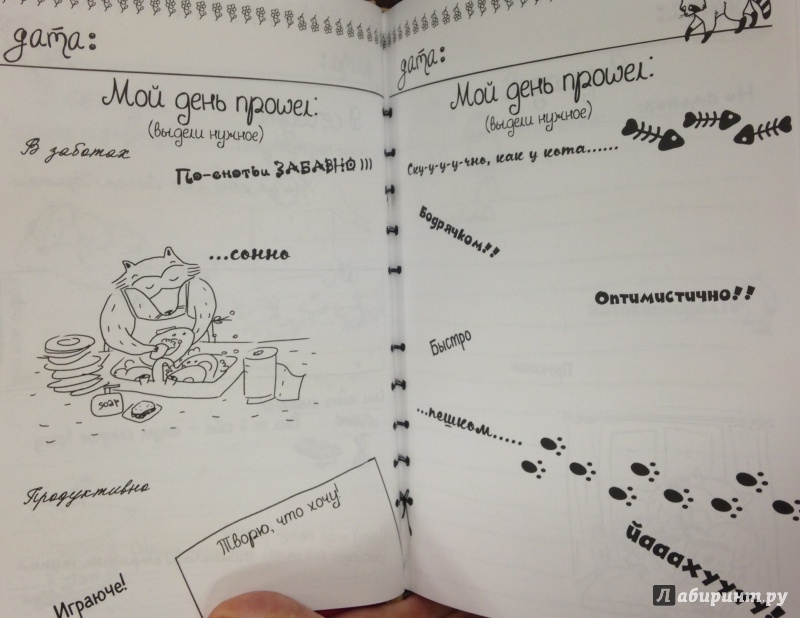 дата:
Мой день прошел:
(выдели нужное)
В заботах
По-енотьи ЗАБАВНО )))
...сонно
soap
Продуктивно
Творю, что хочу!
Играюче!
дата:
Мой день прошел:
(выдели нужное)
Ску-у-у-у-чно, как у кота......
Бодрячком!!
Оптимистично!!
Быстро
...пешком.....
Йааахууу!
Лабиринт.ру